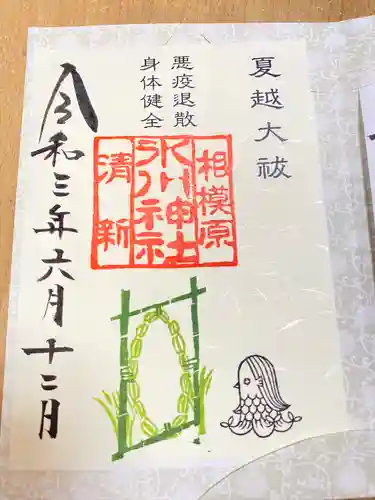 夏越大祓
悪疫退散
身体健全
相模原
氷川神社
清新
令和三年六月十二日